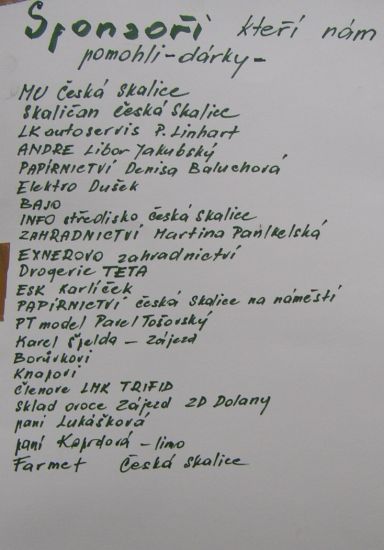 Sponzoři kteří nám
pomohli - dárky -
MU Česká Skalice
Skaličan Česká Skalice
LK autoservis P. Linhart
ANDRE Libor Jakubský
PAPÍRNICTVÍ Denisa Baluchová
Elektro Dušek
BAJO
INFO středisko Česká Skalice
ZAHRADNICTVÍ Martina
EXNEROVO zahradnictví
Drogerie TETA
ESK Karlíček
PAPÍRNICTVÍ Česká Skalice na náměstí
PT model Pavel Tošovský
Karel Špelda - zájezd
Borůvkovi
Knapovi
členové LMK TRIFID
Sklad ovoce Zájezd ZD Dolany
paní Lukášková
paní Koprdová - limo
Farmet Česká Skalice